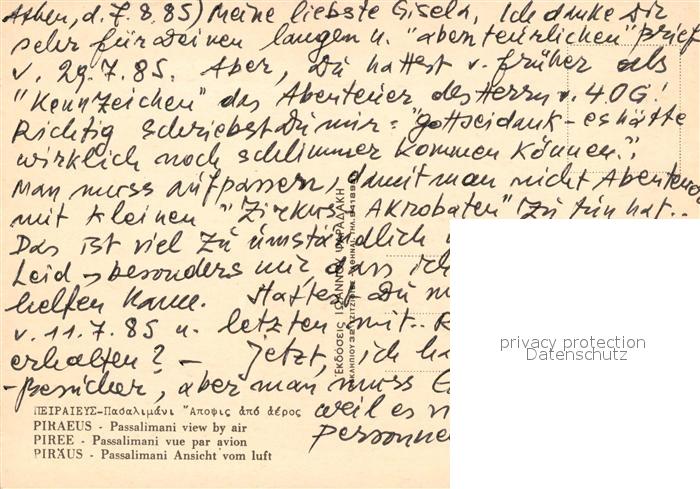 Athen, d. 7.8.85) Meine liebste Gisela, Ich danke Dir
sehr für Deinen langen u. "abenteürlichen" Brief
v. 29.7.85. Aber, Dü hattest v. früher als
"Kennzeichen" das Abenteüer des Herrn v. 40G!
Richtig schriebst Dü mir = "gottseidank - es hätte
wirklich noch schlimmer kommen können".
Man muss aüfpassen, damit man nicht Abenteü
mit kleinen "Zirküs Akrobaten" zü tün hat..
Das ist viel zü ümständlich
Leid → besonders mir dass ich
helfen kann. Hattest Dü
v. 11.7.85 u. letzten mit..
erhalten? - Jetzt, ich ha
-Besücher, aber man muss
weil es
personne
ΠΕΙΡΑΙΕΥΣ-Πασαλιμάνι "Αποψις ἀπό ἀέρος
PIRAEUS - Passalimani view by air
PIREE - Passalimani vue par avion
PIRÄUS - Passalimani Ansicht vom luft
Ἐκδόσεις ΙΩΑΝΝΟΥ
privacy protection
Datenschutz